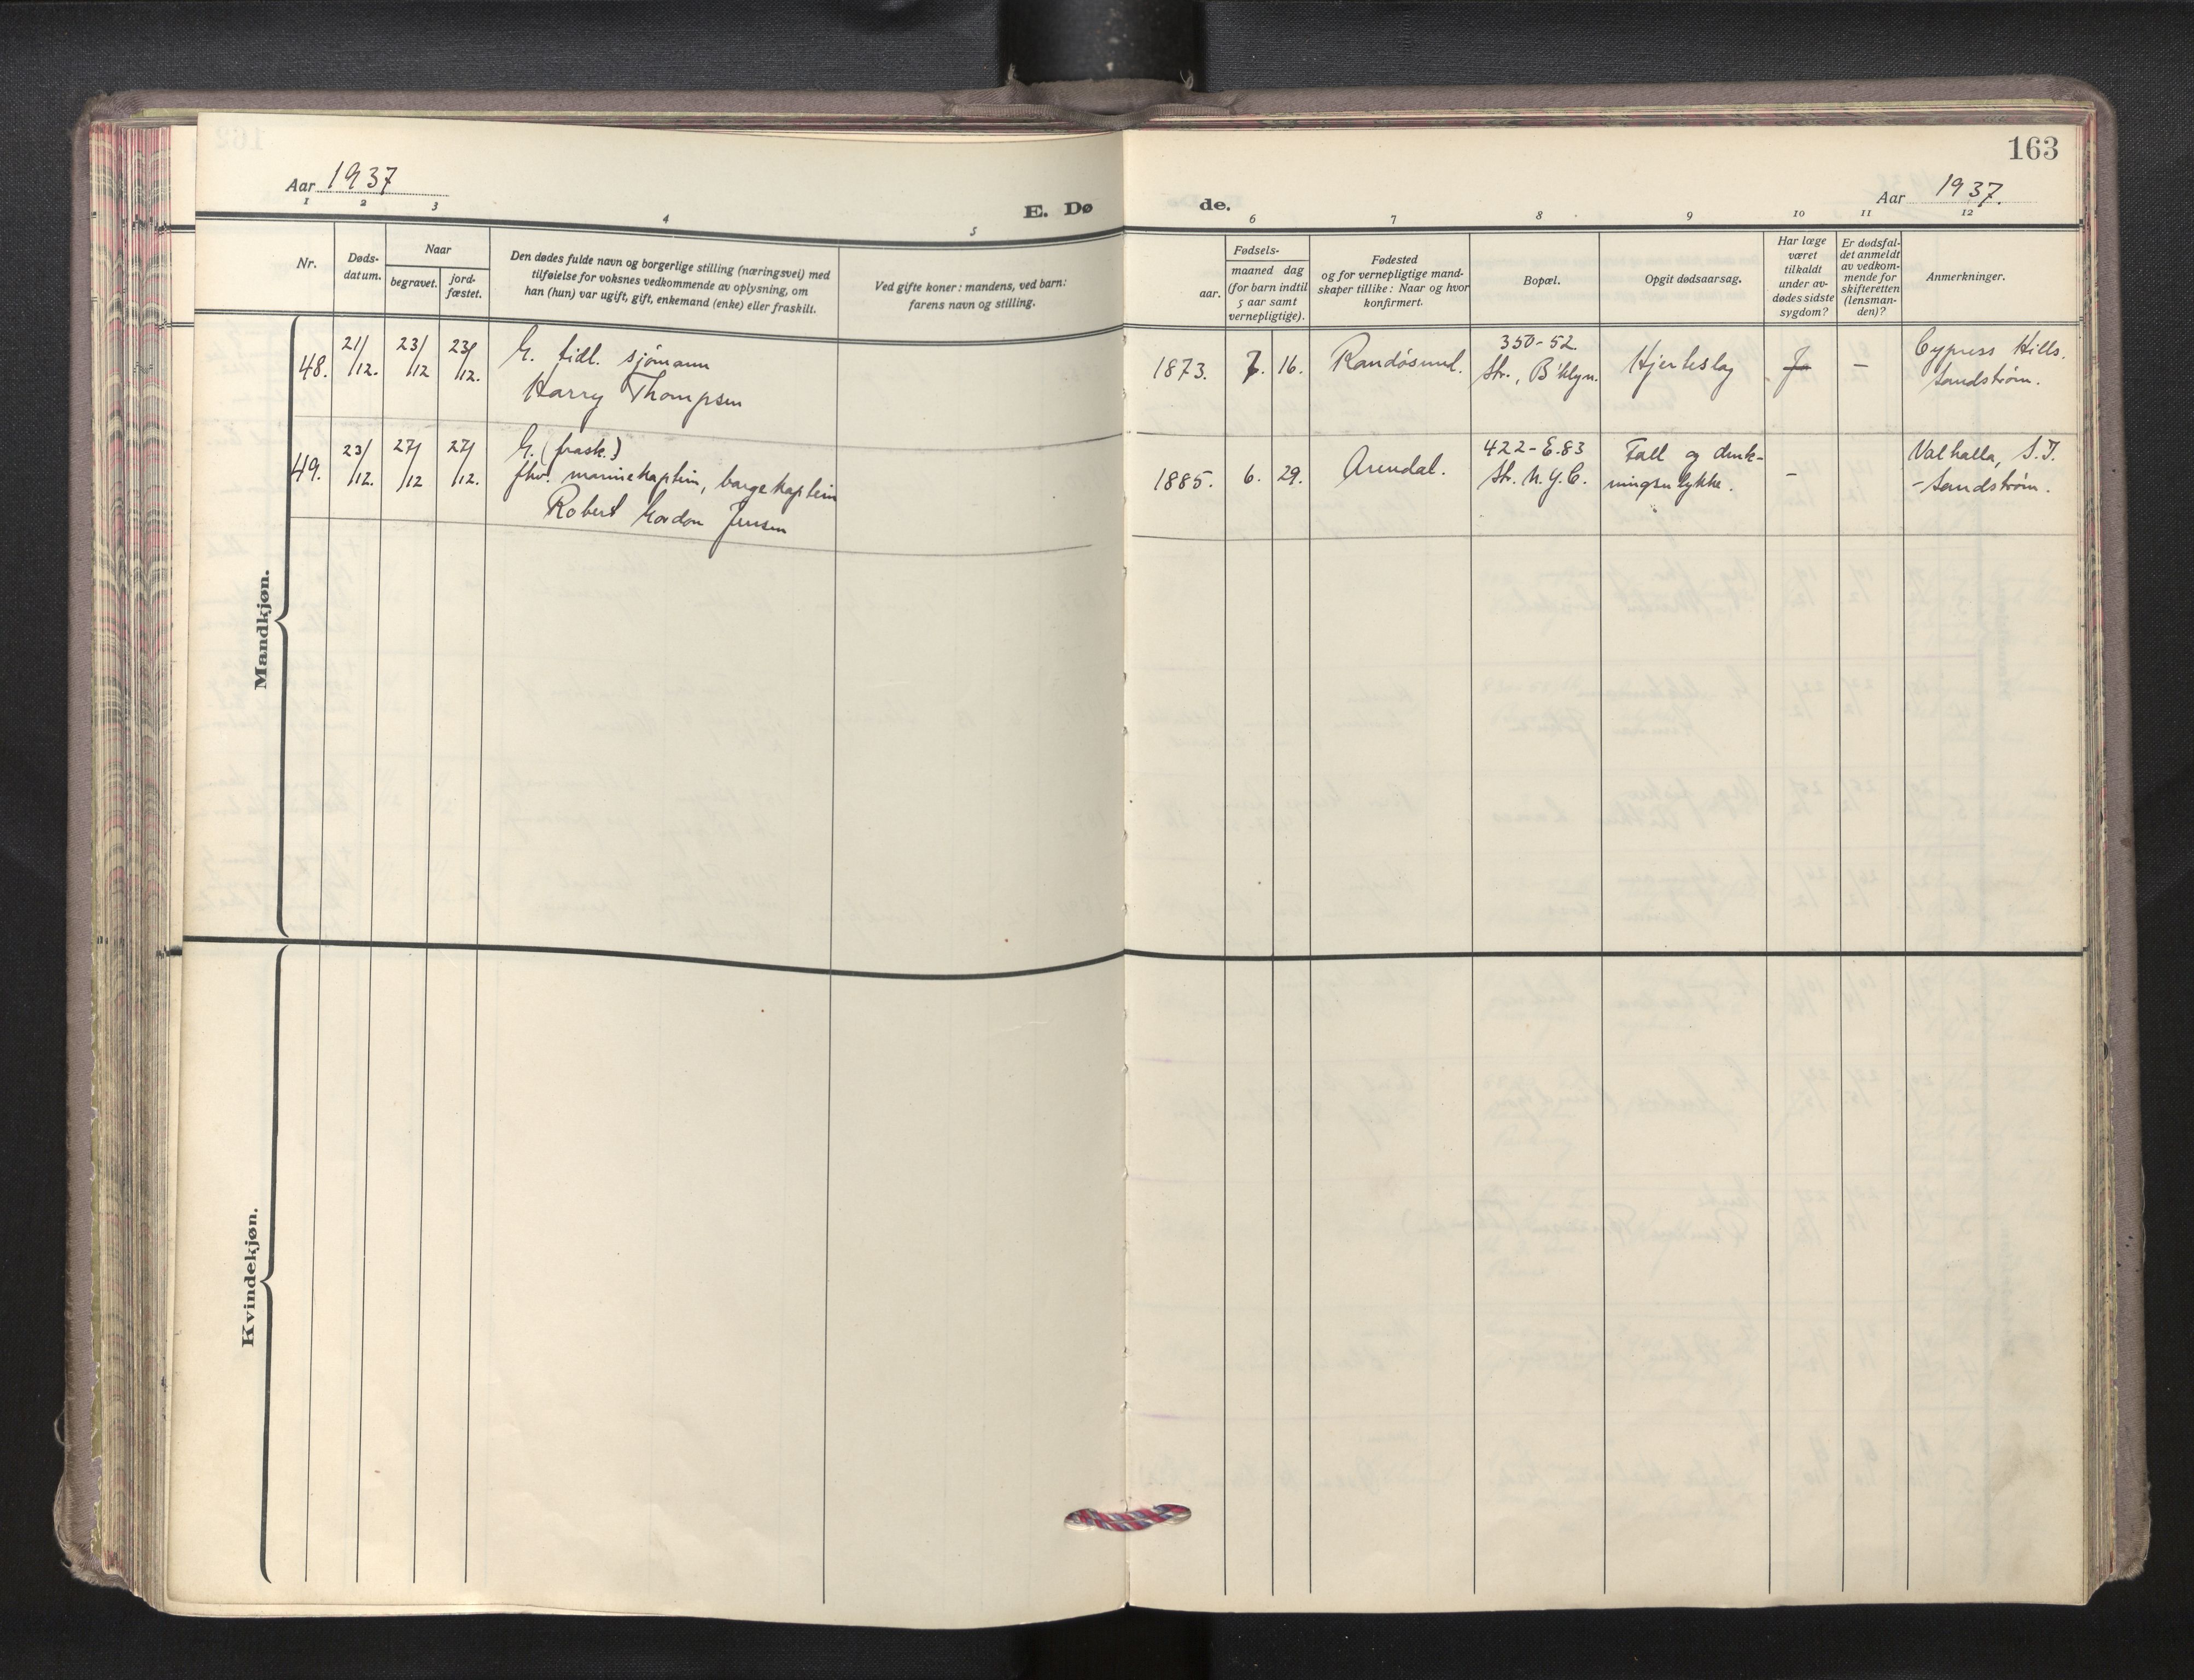 163
Aar 1937
Aar 1937.
E. Dø
de.
1 2 3 4 5 6 7 8 9 10 11 12
Nr.
Døds-
datum.
Naar
begravet.
jord-
fæstet.
Den dødes fulde navn og borgerlige stilling (næringsvei) med
tilføielse for voksnes vedkommende av oplysning, om
han (hun) var ugift, gift, enkemand (enke) eller fraskilt.
Ved gifte koner: mandens, ved barn:
farens navn og stilling.
Fødsels-
aar.
maaned dag
(for barn indtil
5 aar samt
vernepligtige).
Fødested
og for vernepligtige mand-
skaper tillike: Naar og hvor
konfirmert.
Bopæl.
Opgit dødsaarsag.
Har læge
været
tilkaldt
under av-
dødes sidste
sygdom?
Er dødsfal-
det anmeldt
av vedkom-
mende for
skifteretten
(lensman-
den)?
Anmerkninger.
Mandkjøn.
48.
21/
/12.
23/
/12
23/
/12.
G. tidl. sjömann
Harry Thompsen
1873.
7.
16.
Randösund.
350-52.
Str., B'klyn.
Hjerteslag
J
–
Cypress Hills.
Sandström.
49.
23/
/12.
27/
/12
27/
/12.
G. (frask.)
fhv. marinekaptein, bargekaptein
Robert Gordon Jensen
1885.
6.
29.
Arendal.
422-E.83
Str. N.Y.C.
Fall og druk-
ningsulykke.
–
Valhalla, S.I.
- Sandström.
Kvindekjøn.